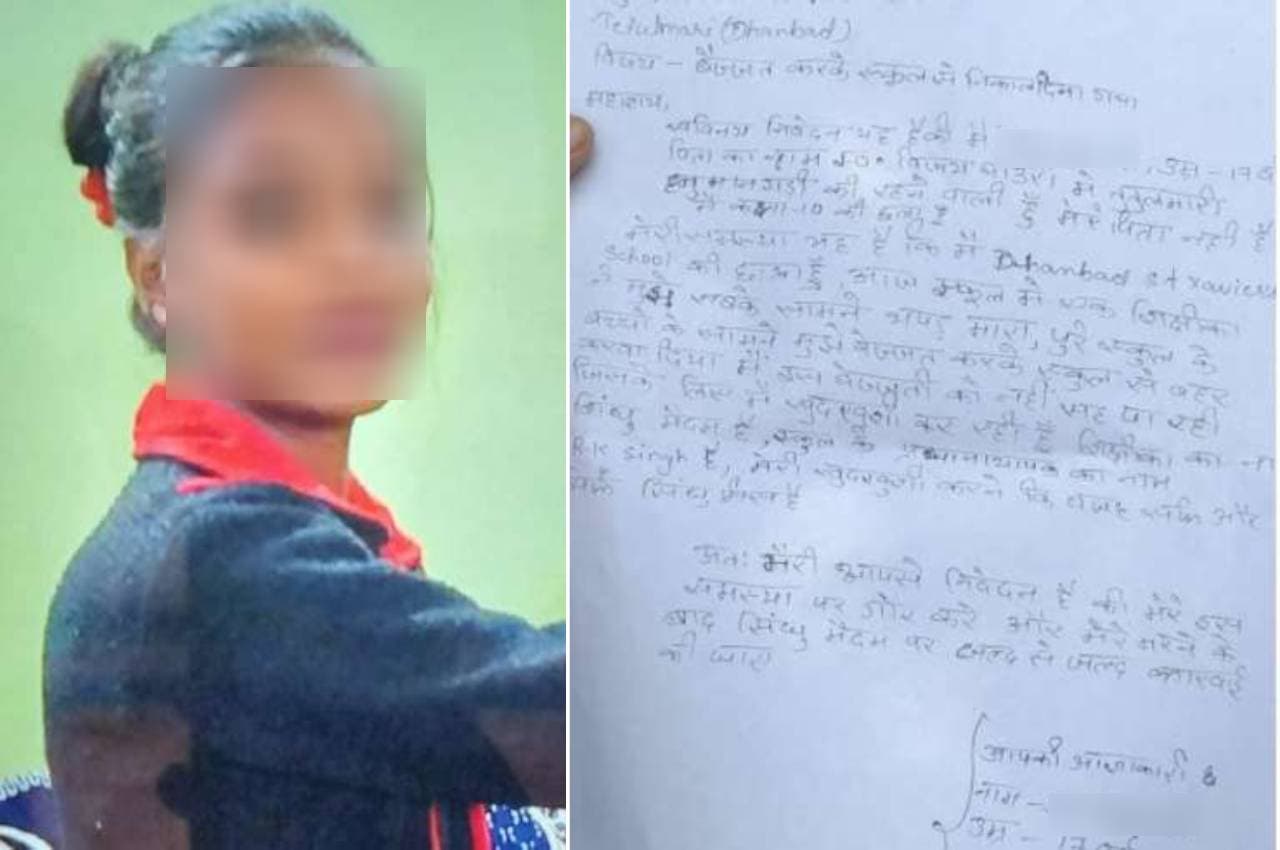 Tetulmari (Dhanbad)
विषय - बेज्जत करके स्कूल से निकाल दिया गया
महाशय,
सविनय निवेदन यह है की मैं , उम्र - 17 व
पिता का नाम स्व० में तेतुलमारी
हनुमानगढ़ी की रहने वाली हूँ मेरे पिता नहीं है
मैं कक्षा-10 की छात्रा हूँ
मेरी समस्या यह है कि मैं Dhanbad st xaviers
school की छात्रा हूँ, आज स्कूल में एक शिक्षीका
ने मुझे सबके सामने थप्पड़ मारा, पुरे स्कूल के
बच्चों के सामने मुझे बेज्जत करके स्कूल से बहर
करवा दिया मैं इस बेज्जती को नहीं सह पा रही
जिसके लिए मैं खुदखुशी कर रही हूँ शिक्षीका का ना
सिंधु मैडम है, स्कूल के प्रधानाध्यापक का नाम
R.K singh है, मेरी खुदखुशी करने कि वजह सिर्फ और
सिर्फ सिंधु मैडम है
अतः मेरी आपसे निवेदन है की मेरे इस
समस्या पर गौर करे और मेरे मरने के
बाद सिंधु मैडम पर जल्द से जल्द कारवाई
की जाए
आपकी आज्ञाकारी
नाम -
उम्र - 17 वर्ष